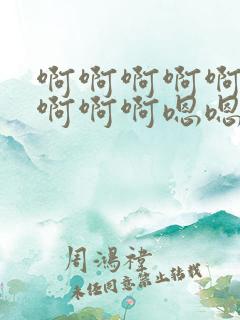 啊啊啊啊啊
啊啊啊嗯嗯
周鴻禕
未经同意禁止转载